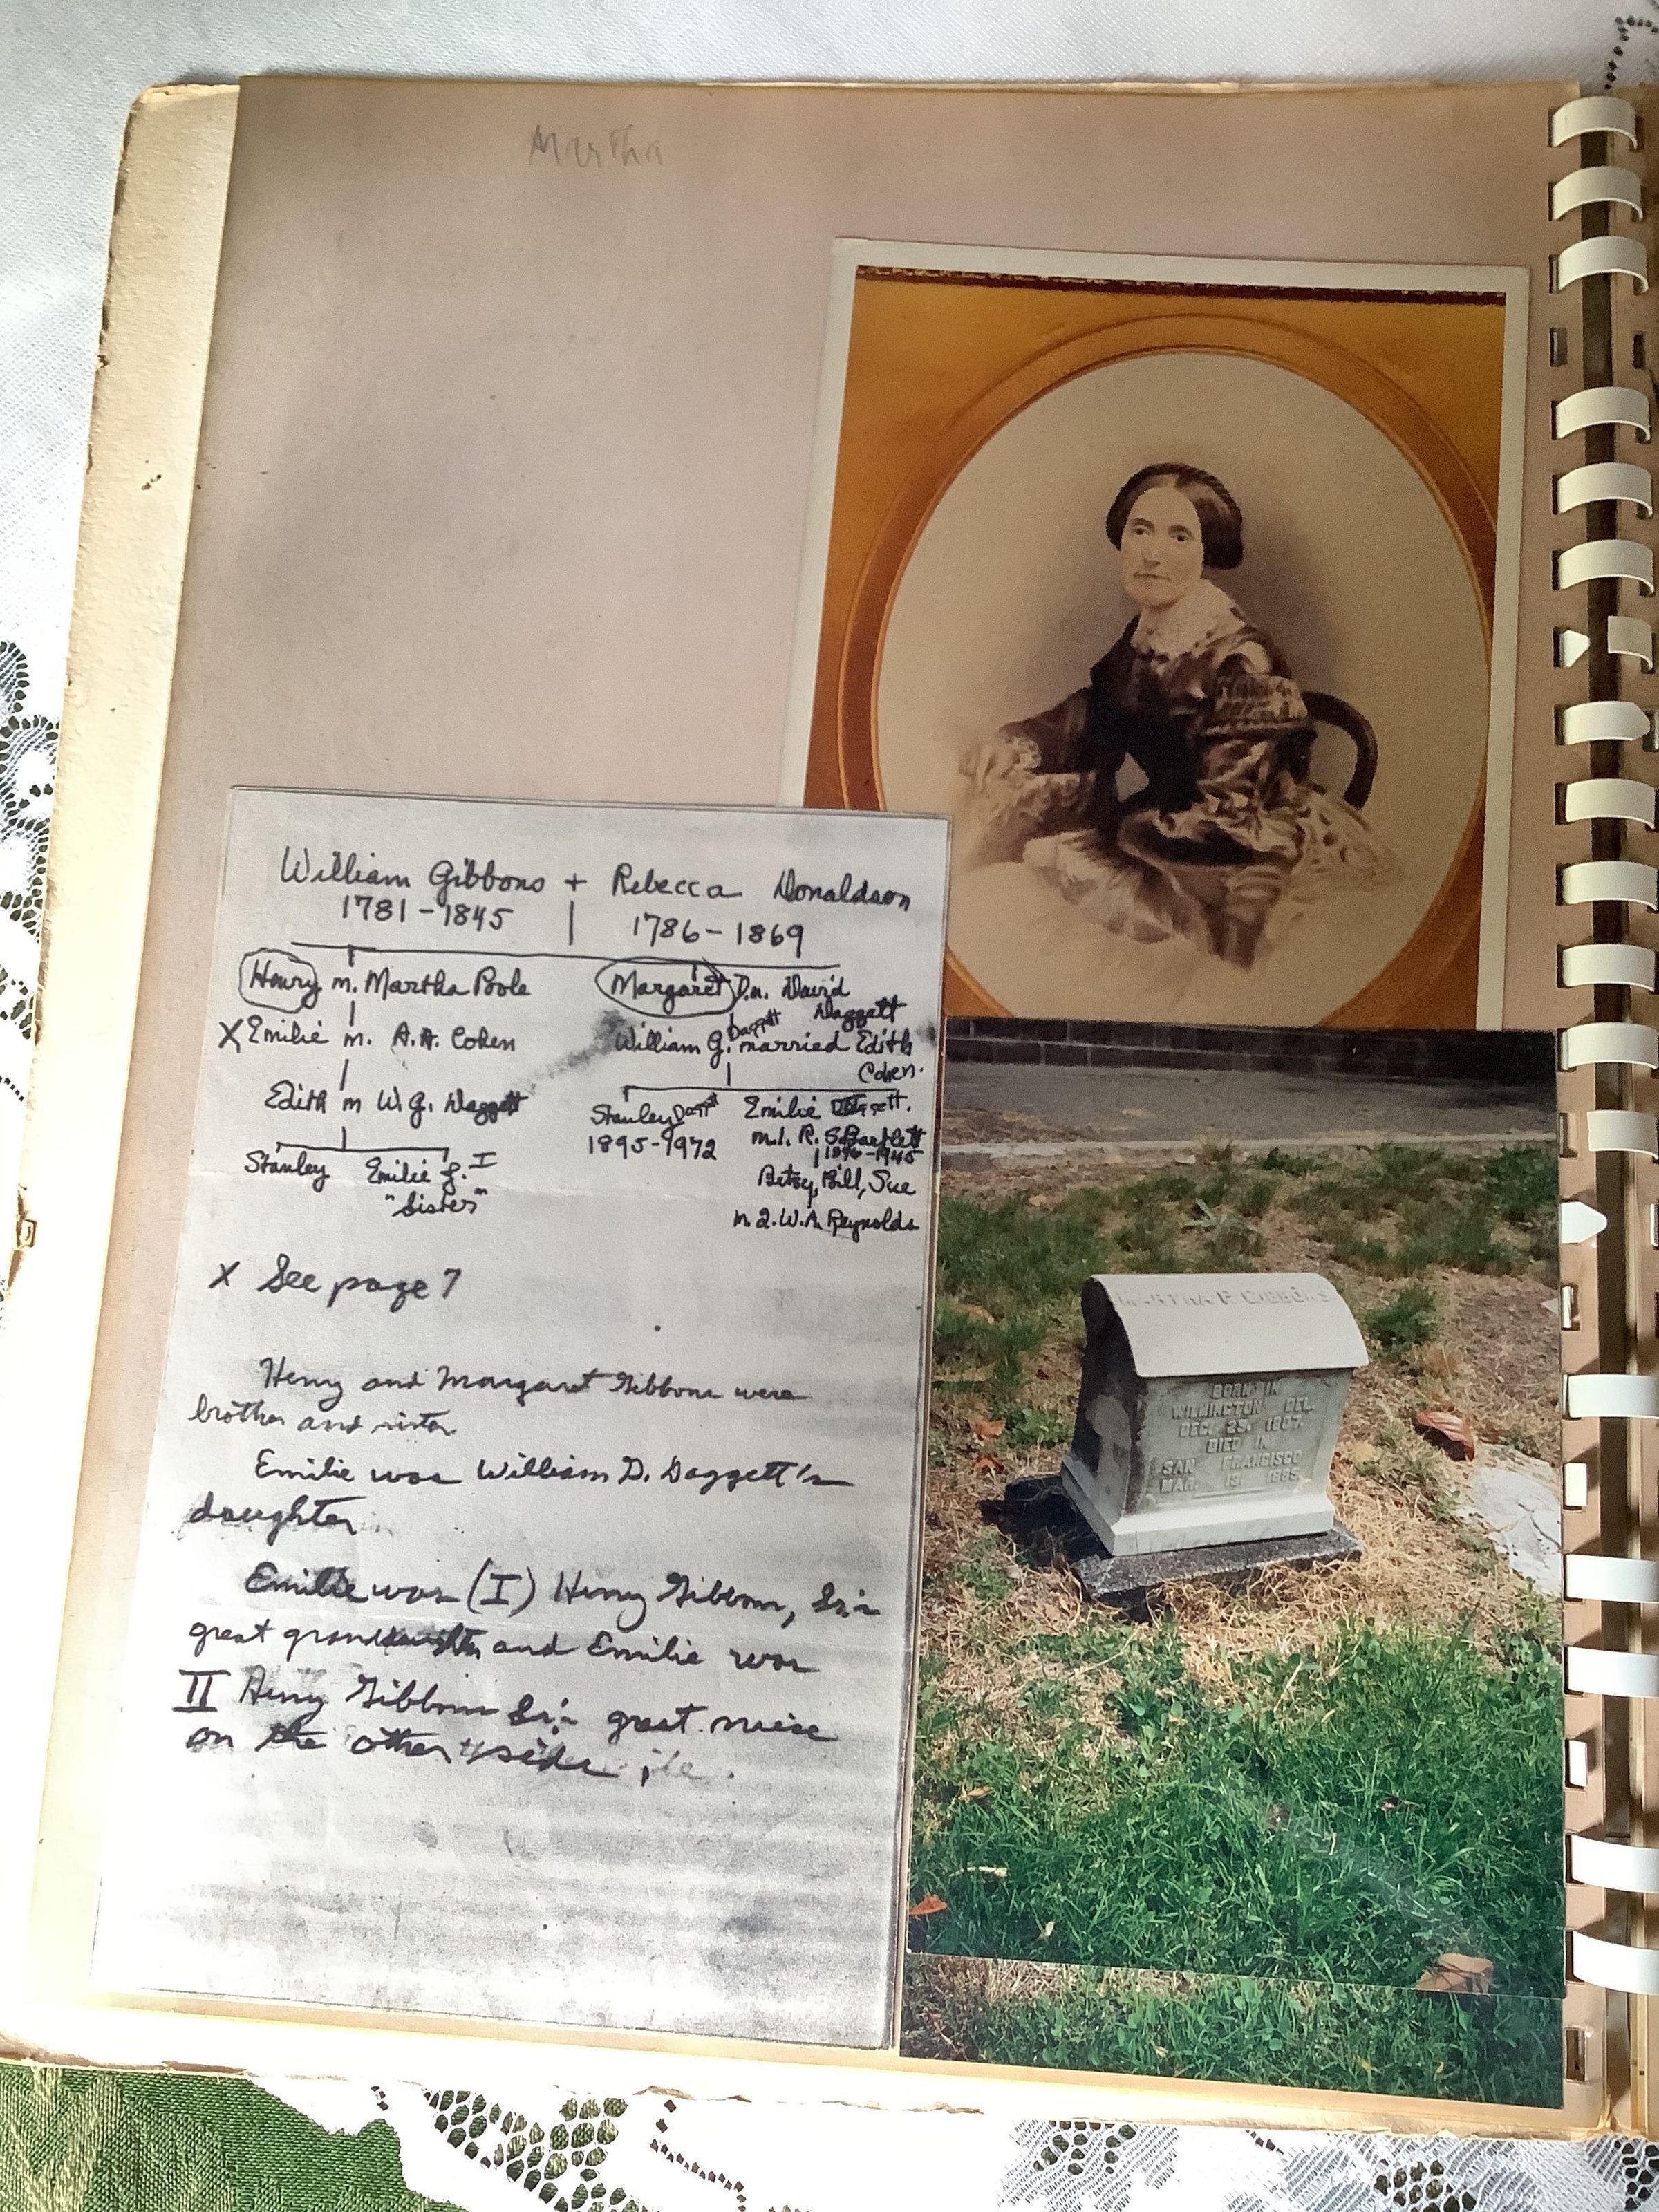 Martha
William Gibbons + Rebecca Donaldson
1781-1845 1786-1869
Henry m. Martha Pole
X Emilie m. A.A. Cohen
Edith m W.G. Daggett
Stanley Emilie G. I
"Sister"
Margaret D.m. David
Daggett
William G. Daggett married Edith
Cohen.
Stanley Daggett Emilie Daggett.
1895-1972 m.1. R. S. Bartlett
1896-1945
Betsy, Bill, Sue
m.2. W.A. Reynolds
X See page 7
Henry and Margaret Gibbons were
brother and sister
Emilie was William D. Daggett's
daughter
Emilie was (I) Henry Gibbons, Sr's
great granddaughter and Emilie was
II Henry Gibbons Sr's great niece
on the other side
MARTHA P. GIBBONS
BORN IN
WILMINGTON DEL.
DEC. 25, 1807.
DIED IN
SAN FRANCISCO
MAR. 13, 1885.